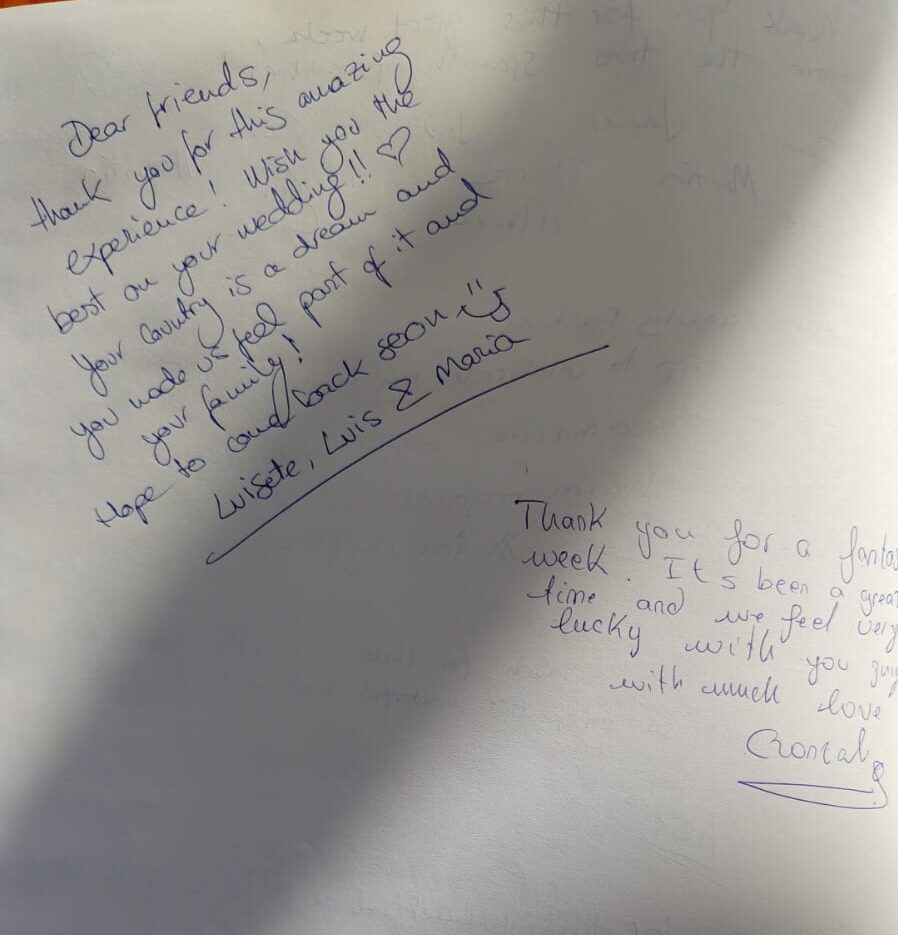 Dear friends,
thank you for this amazing
experience! Wish you the
best on your wedding!! ♡
Your Country is a dream and
you made us feel part of it and
your family!
Hope to come back soon
Luisete, Luis & Maria
Thank you for a fantas
week. It s been a great
time and we feel very
lucky with you guy
with much love